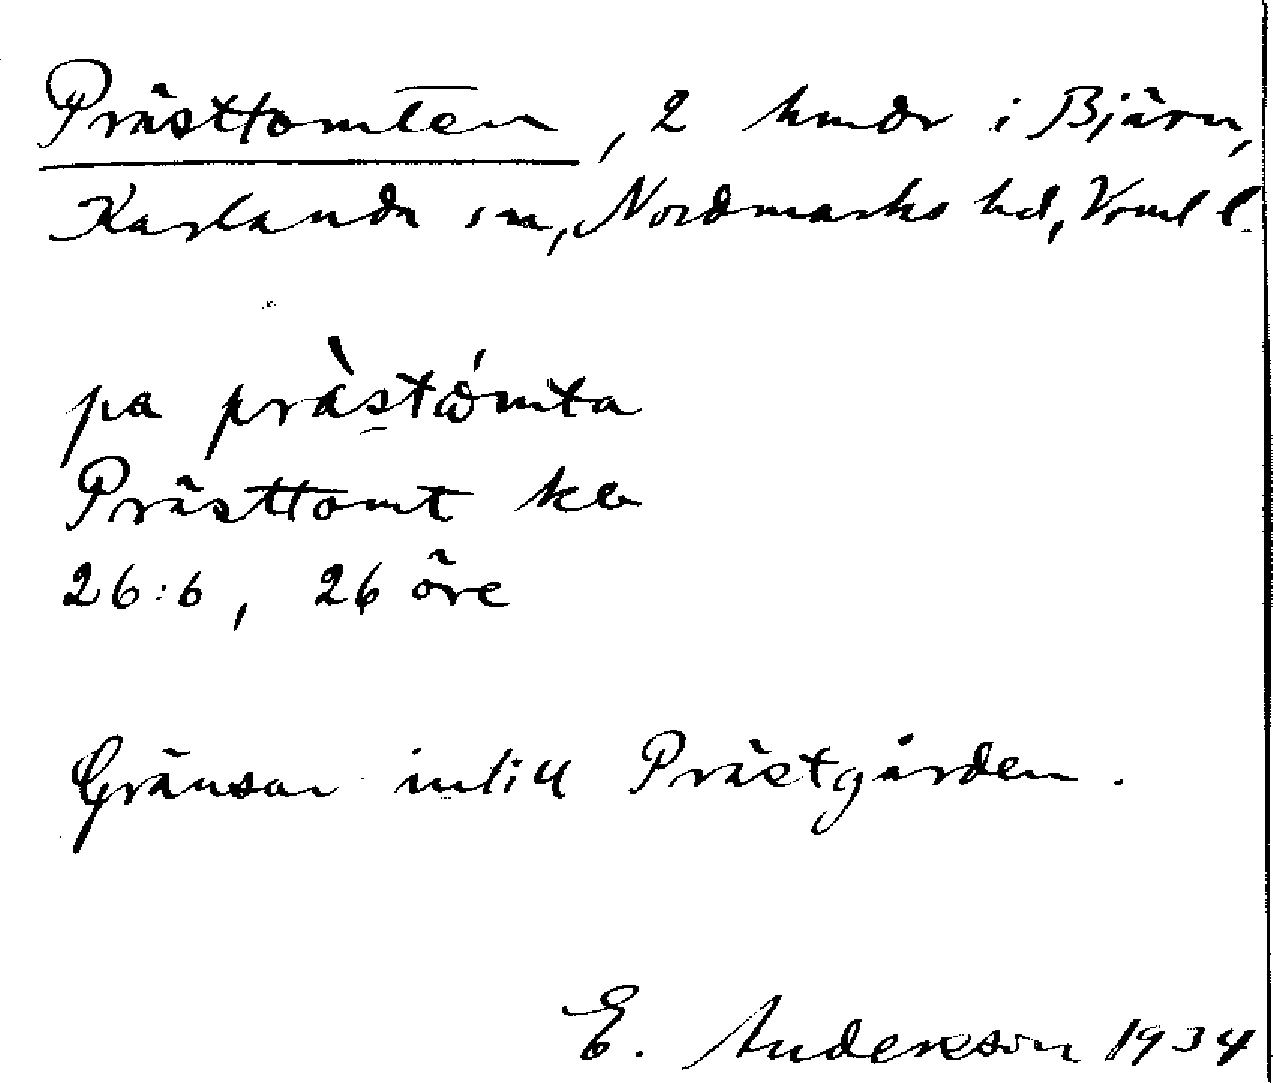 Prästtomten, 2 hmdr i Bjärn,
Karlanda sn, Nordmarks hd, Vrml l.
pa prästòmta
Prästtomt ka
26:6, 26 öre
Gränsar intill Prästgården.
E. Anderson 1934